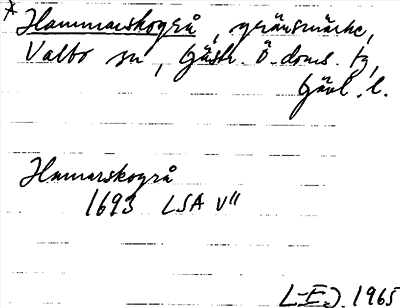 * Hammarskogrå, gränsmärke,
Valbo sn, Gästr. Ö. doms. tg,
Gävl. l.
Hamarskogrå
1693 LSA V"
L-E.J. 1965